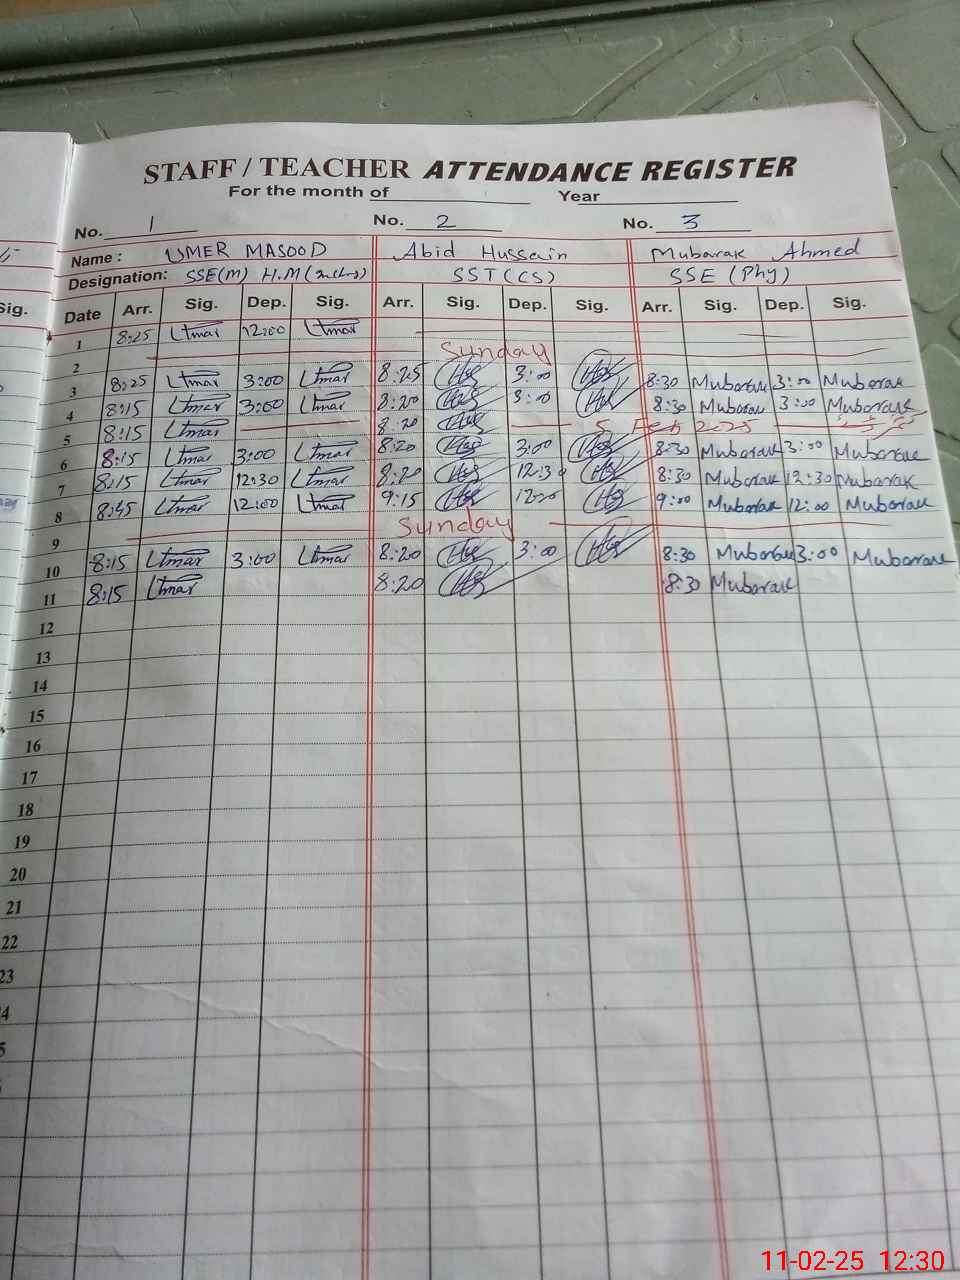 STAFF / TEACHER ATTENDANCE REGISTER
For the month of Year
No. 1 No. 2 No. 3
Name : UMER MASOOD Abid Hussain Mubarak Ahmed
Designation: SSE(M) H.M SST(CS) SSE (Phy)
Sig. Date Arr. Sig. Dep. Sig. Arr. Sig. Dep. Sig. Arr. Sig. Dep. Sig.
1 8:25 Umar 12:00 Umar
2 Sunday
3 8:25 Umar 3:00 Umar 8:25 3:00 8:30 Mubarak 3:00 Mubarak
4 8:15 Umar 3:00 Umar 8:20 3:00 8:30 Mubarak 3:00 Mubarak
5 8:15 Umar 8:20 5 Feb 2025
6 8:15 Umar 3:00 Umar 8:20 3:00 8:30 Mubarak 3:00 Mubarak
7 8:15 Umar 12:30 Umar 8:20 12:30 8:30 Mubarak 12:30 Mubarak
8 8:45 Umar 12:00 Umar 9:15 9:00 Mubarak 12:00 Mubarak
9 Sunday
10 8:15 Umar 3:00 Umar 8:20 3:00 8:30 Mubarak 3:00 Mubarak
11 8:15 Umar 8:20 8:30 Mubarak
12
13
14
15
16
17
18
19
20
21
22
23
11-02-25 12:30